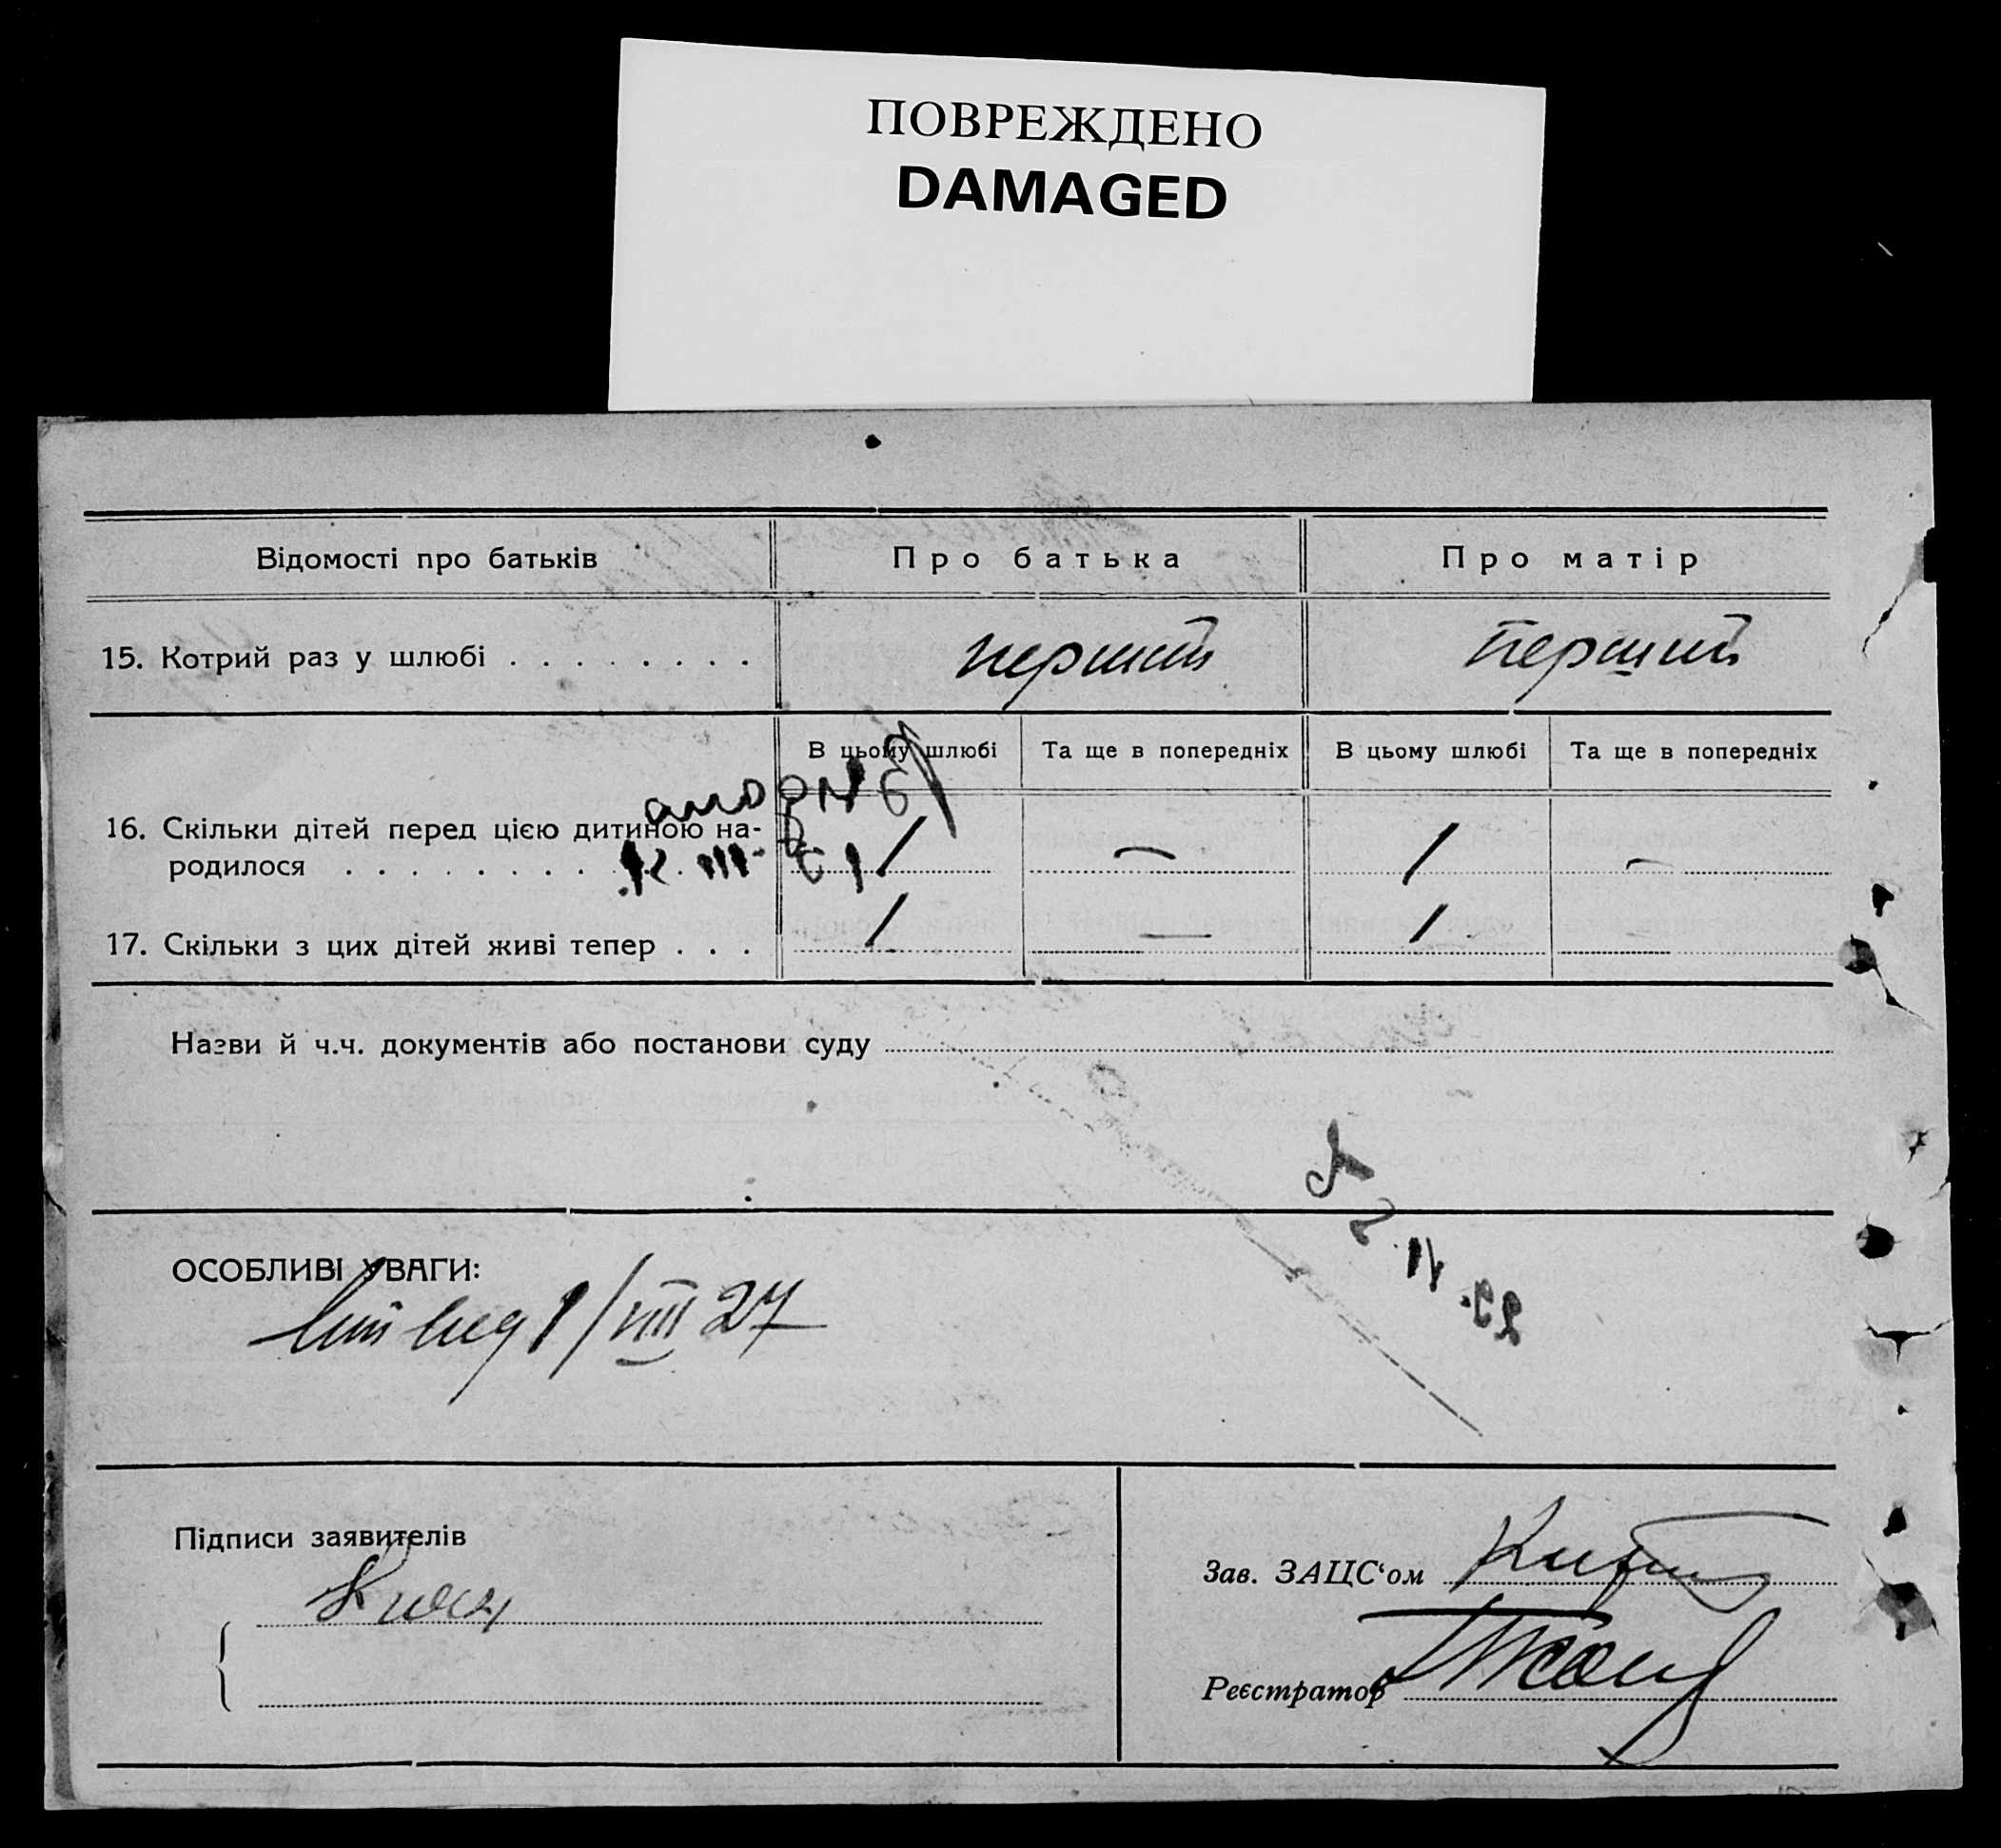 ПОВРЕЖДЕНО
DAMAGED
Відомості про батьків Про батька Про матір
15. Котрий раз у шлюбі . . . . . . . . перший перший
В цьому шлюбі Та ще в попередніх В цьому шлюбі Та ще в попередніх
16. Скільки дітей перед цією дитиною на-
родилося . . . . . . . . 1 — 1 —
17. Скільки з цих дітей живі тепер . . . 1 — 1 —
Назви й ч.ч. документів або постанови суду
ОСОБЛИВІ УВАГИ:
1/VIII 27
Підписи заявителів
Зав. ЗАЦС‘ом
Реєстратор